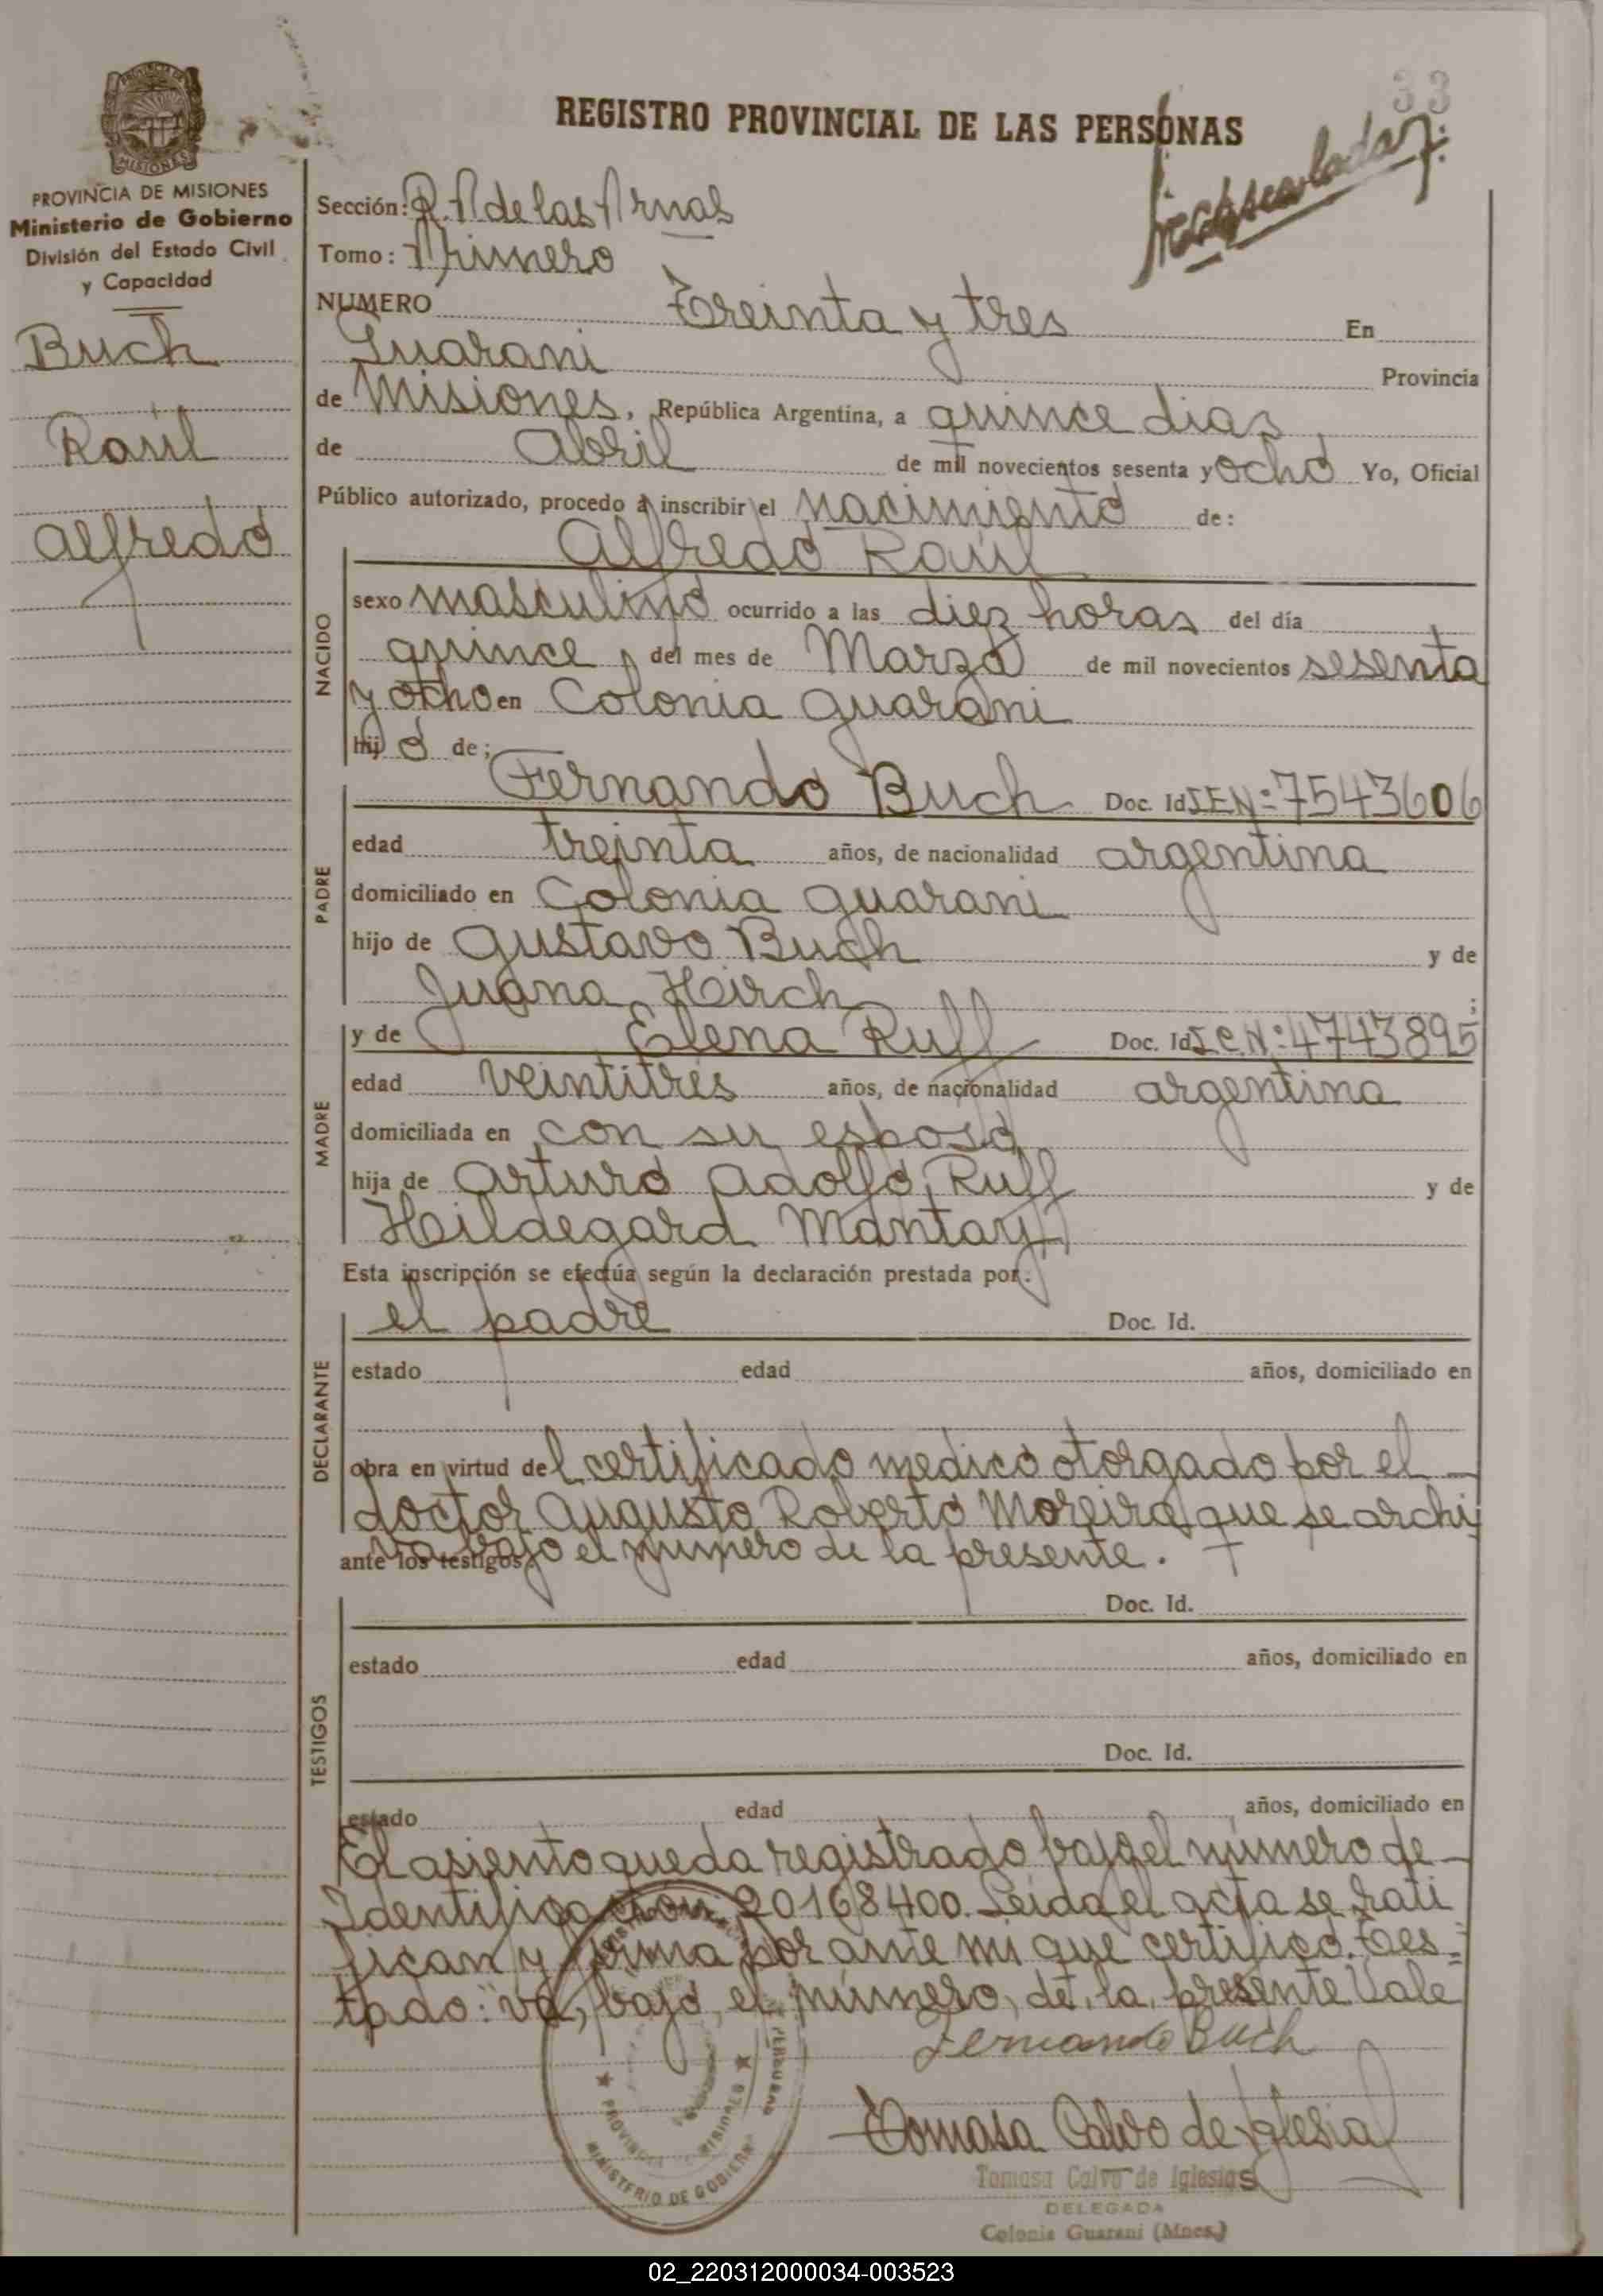 33
REGISTRO PROVINCIAL DE LAS PERSONAS
PROVINCIA DE MISIONES
PROVINCIA DE MISIONES
Ministerio de Gobierno
División del Estado Civil
y Capacidad
Buch
Raúl
Alfredo
Sección: R. P. de las Prnas
Tomo: Primero
NUMERO Treinta y tres En
Guarani Provincia
de Misiones, República Argentina, a quince dias
de Abril de mil novecientos sesenta y ocho Yo, Oficial
Público autorizado, procedo a inscribir el nacimiento de:
NACIDO
Alfredo Raúl
sexo masculino ocurrido a las diez horas del día
quince del mes de Marzo de mil novecientos sesenta
y ocho en Colonia Guarani
hijo de;
PADRE
Fernando Buch Doc. Id. I E N: 7543606
edad treinta años, de nacionalidad argentina
domiciliado en Colonia Guarani
hijo de Gustavo Buch y de
Juana Hirch ;
MADRE
y de Elena Ruff Doc. Id. I C N: 4743895
edad veintitres años, de nacionalidad argentina
domiciliada en con su esposo
hija de Arturo Adolfo Ruff y de
Hildegard Mantay
Esta inscripción se efectúa según la declaración prestada por:
DECLARANTE
el padre Doc. Id.
estado edad años, domiciliado en
obra en virtud del certificado medico otorgado por el
doctor Augusto Roberto Moreira que se archi
ante los testigos va bajo el numero de la presente.
TESTIGOS
Doc. Id.
estado edad años, domiciliado en
Doc. Id.
estado edad años, domiciliado en
El asiento queda registrado bajo el número de
Identificación 20168400. Leida el acta se rati
fican y firma por ante mi que certifico. Tes=
tado: "va, bajo, el, número, de, la, presente" Vale
Fernando Buch
PROVINCIA DE MISIONES
MINISTERIO DE GOBIERNO
Tomasa Calvo de Iglesias
Tomasa Calvo de Iglesias
DELEGADA
Colonia Guarani (Mnes.)
02_220312000034-003523